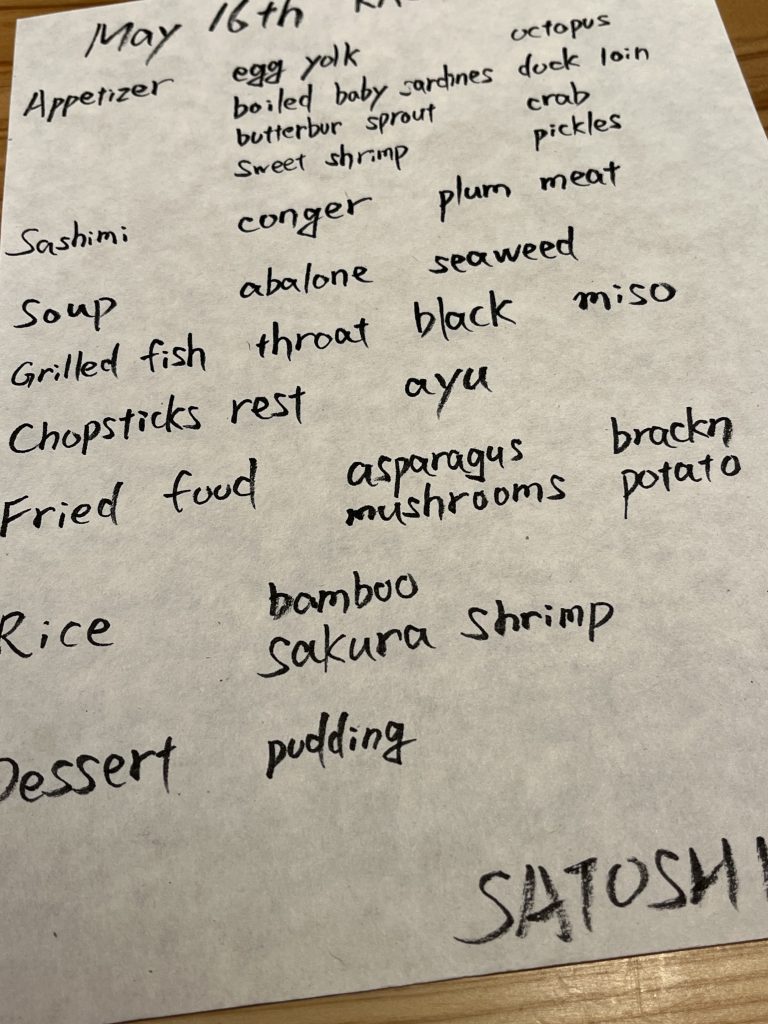 May 16th
Appetizer egg yolk octopus
boiled baby sardines duck loin
butterbur sprout crab
sweet shrimp pickles
Sashimi conger plum meat
Soup abalone seaweed
Grilled fish throat black miso
Chopsticks rest ayu
Fried food asparagus brackn
mushrooms potato
Rice bamboo
sakura shrimp
Dessert pudding
SATOSHI